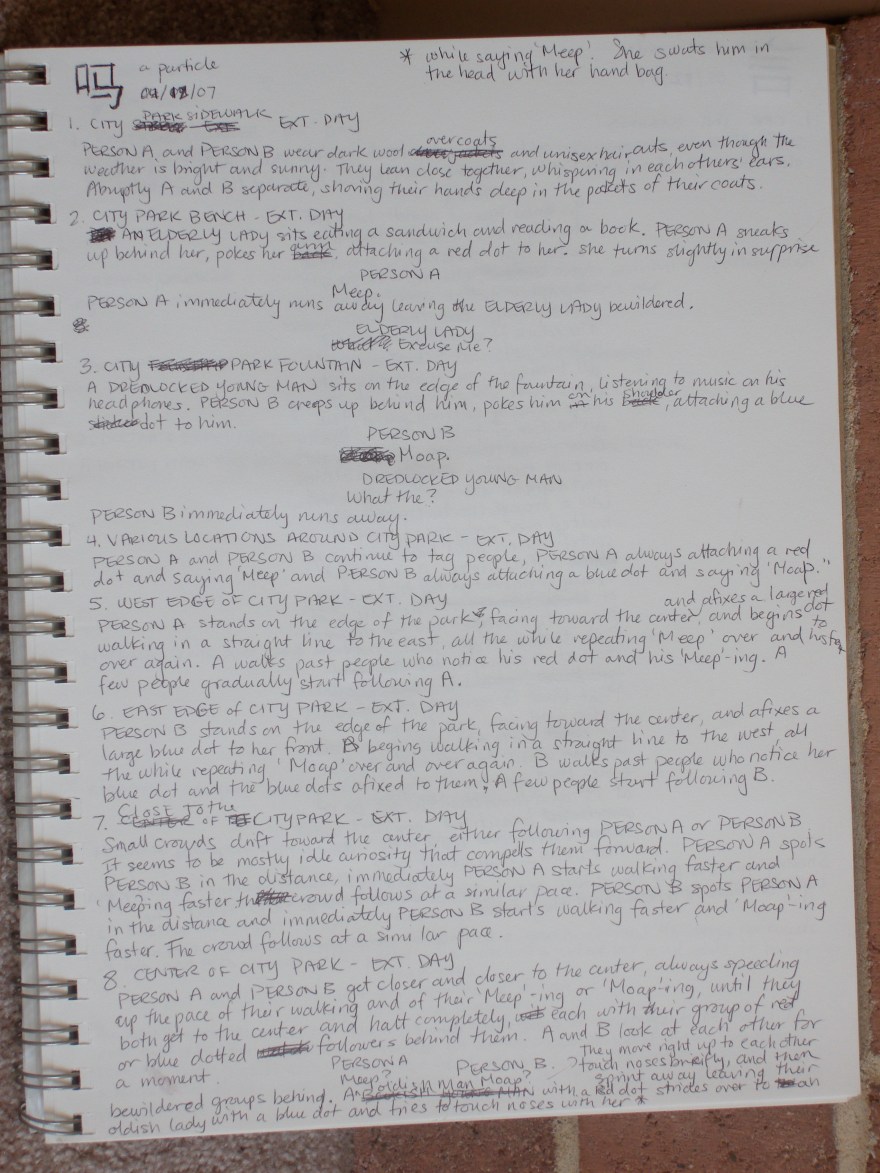 吗 a particle
* while saying 'Meep'. She swats him in
the head with her hand bag.
01/12/07
1. CITY PARK SIDEWALK EXT. DAY
PERSON A and PERSON B wear dark wool overcoats and unisex haircuts, even though the
weather is bright and sunny. They lean close together, whispering in each others' ears.
Abruptly A and B separate, shoving their hands deep in the pockets of their coats.
2. CITY PARK BENCH - EXT. DAY
AN ELDERLY LADY sits eating a sandwich and reading a book. PERSON A sneaks
up behind her, pokes her, attaching a red dot to her. She turns slightly in surprise
PERSON A
Meep.
PERSON A immediately runs away leaving the ELDERLY LADY bewildered.
ELDERLY LADY
Excuse Me?
3. CITY PARK FOUNTAIN - EXT. DAY
A DREDLOCKED YOUNG MAN sits on the edge of the fountain, listening to music on his
headphones. PERSON B creeps up behind him, pokes him on his shoulder, attaching a blue
dot to him.
PERSON B
Moap.
DREDLOCKED YOUNG MAN
What the?
PERSON B immediately runs away.
4. VARIOUS LOCATIONS AROUND CITY PARK - EXT. DAY
PERSON A and PERSON B continue to tag people, PERSON A always attaching a red
dot and saying 'Meep' and PERSON B always attaching a blue dot and saying 'Moap."
5. WEST EDGE OF CITY PARK - EXT. DAY
and afixes a large red dot to his
PERSON A stands on the edge of the park, facing toward the center, and begins
walking in a straight line to the east, all the while repeating 'Meep' over and
over again. A walks past people who notice his red dot and his 'Meep'-ing. A
few people gradually start following A.
6. EAST EDGE OF CITY PARK - EXT. DAY
PERSON B stands on the edge of the park, facing toward the center, and afixes a
large blue dot to her front. B begins walking in a straight line to the west, all
the while repeating 'Moap' over and over again. B walks past people who notice her
blue dot and the blue dots afixed to them. A few people start following B.
7. CLOSE TO the CITY PARK - EXT. DAY
Small crowds drift toward the center, either following PERSON A or PERSON B
It seems to be mostly idle curiosity that compells them forward. PERSON A spots
PERSON B in the distance, immediately PERSON A starts walking faster and
'Meeping faster crowd follows at a similar pace. PERSON B spots PERSON A
in the distance and immediately PERSON B starts walking faster and 'Moap'-ing
faster. The crowd follows at a similar pace.
8. CENTER OF CITY PARK - EXT. DAY
PERSON A and PERSON B get closer and closer to the center, always speeding
up the pace of their walking and of their 'Meep'-ing or 'Moap-ing, until they
both get to the center and halt completely, each with their group of red
or blue dotted followers behind them. A and B look at each other for
a moment.
PERSON A
Meep?
PERSON B.
Moap?
They move right up to each other
touch noses briefly, and then
sprint away leaving their
bewildered groups behind. An oldish Man with a red dot strides over to an
oldish lady with a blue dot and tries to touch noses with her *